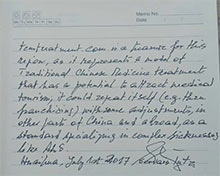 Memo No.
Date
treatment.com is a because for this
region, as it represents a model of
Traditional Chinese Medicine treatment
that has a potential to attract medicinal
tourism, it could repeat itself (e.g. then
franchising) with some adjustments, in
other parts of China and abroad, as a
standard specializing in complex sicknesses
like ALS
July 1st 2017